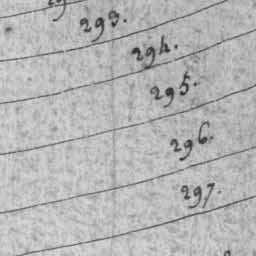 293.
294.
295.
296.
297.